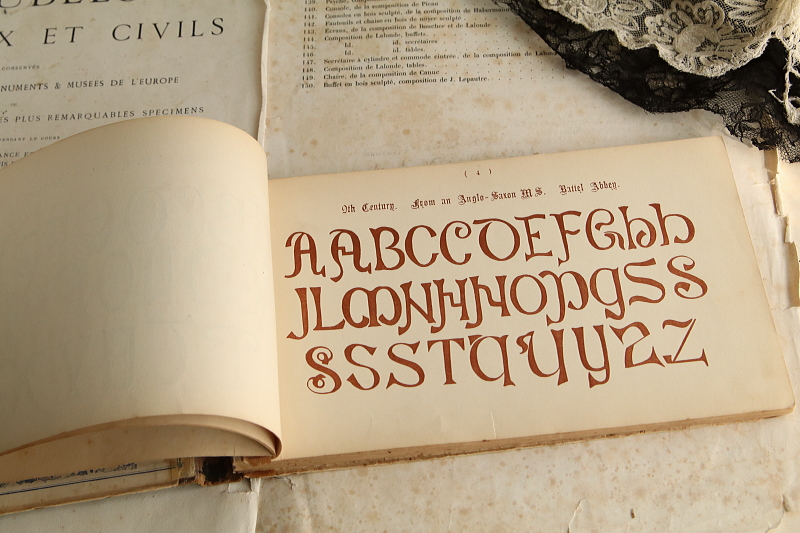 X ET CIVILS
CONSERVÉS
NUMENTS & MUSEES DE L'EUROPE
ES PLUS REMARQUABLES SPECIMENS
PENDANT LE COURS
140. Console, de la composition de Picau
141. Consoles en bois sculpté, de la composition de Habermann
142. Fauteuils et chaise en bois de noyer sculpté
143. Écrans, de la composition de Boucher et de Lalonde
144. Composition de Lalonde, buffets.
145. Id. id. secrétaires
146. Id. id. tables.
147. Secrétaire à cylindre et commode cintrée, de la composition de Lalonde
148. Composition de Lalonde, tables.
149. Chaire, de la composition de Canue
150. Buffet en bois sculpté, composition de J. Lepautre.
( 4 )
9th Century. From an Anglo-Saxon MS. Battel Abbey.
AABCCDEFGhh
JLMNHHOPgSS
SSSTTUYZZ